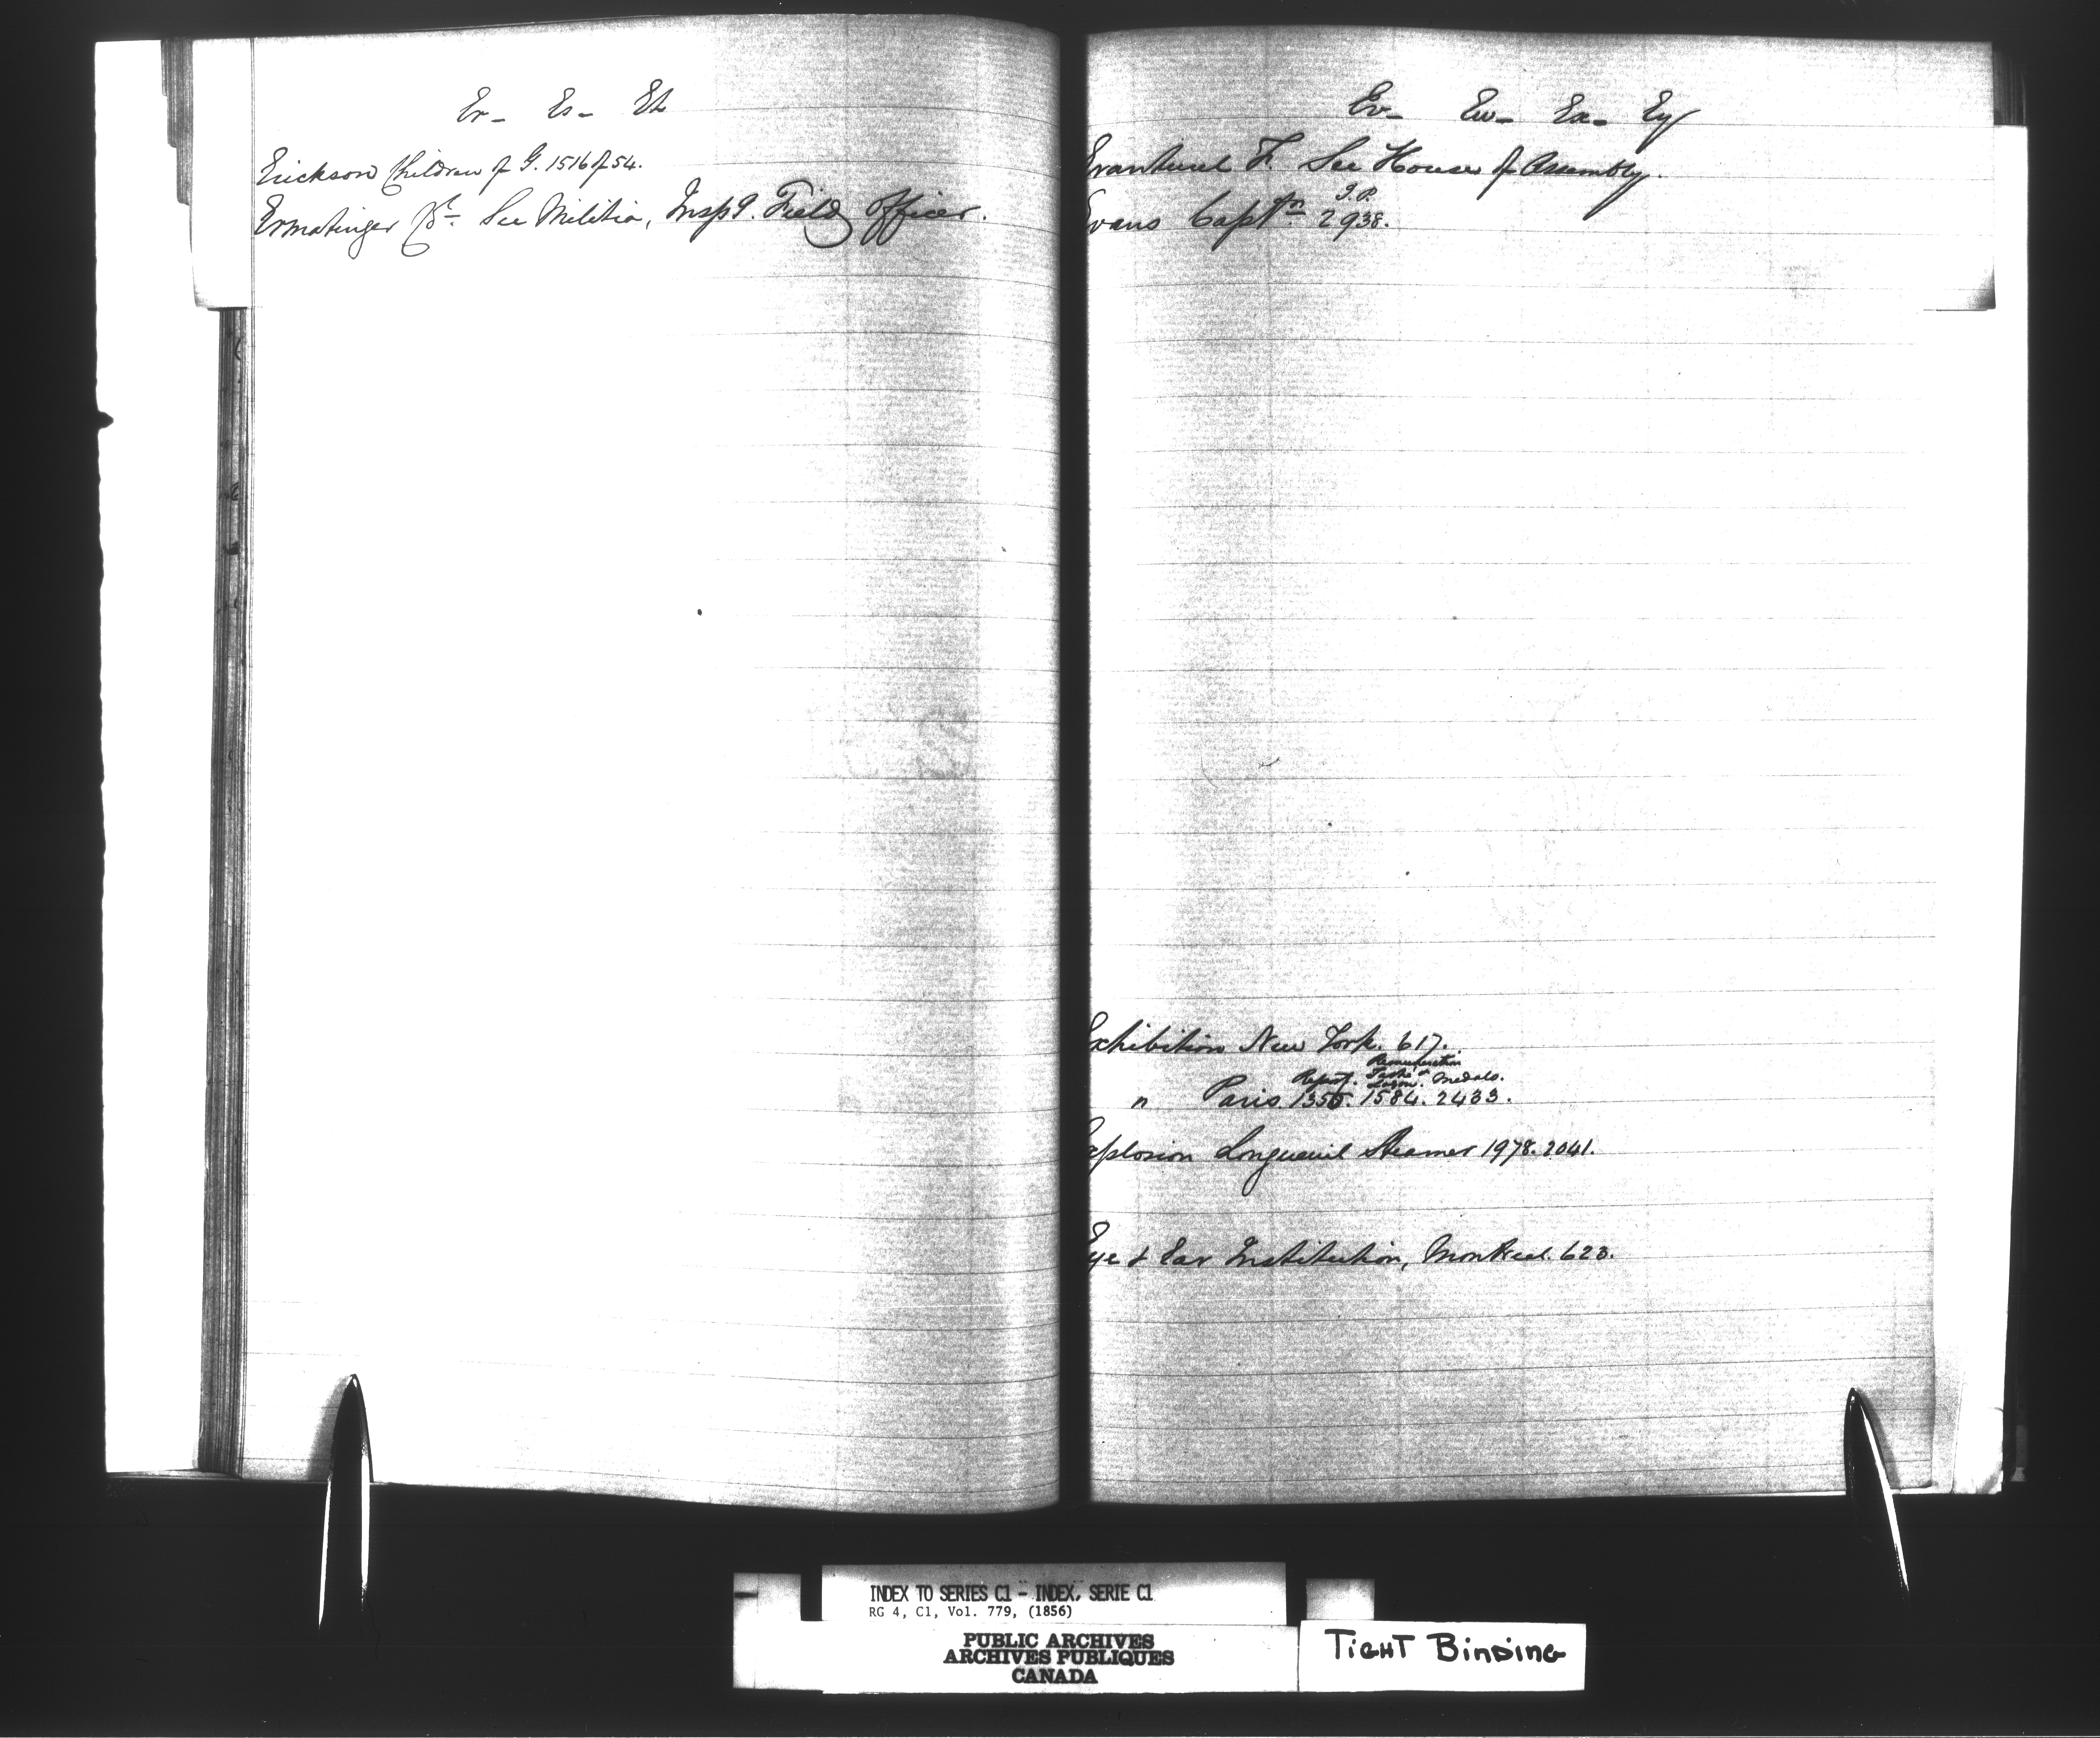 Er- Es- Et
Erickson Children of G. 1516 of 54.
Ermatinger Lt. See Militia, Inspg. Field Officer.
Ev- Ew- Ex- Ey
Evanturel F. See House of Assembly.
J.P.
Evans Captn. 2938.
Exhibition New York. 617.
Remuneration
Report. Taché & Logan. Medals.
" Paris 1355. 1584. 2433.
Explosion Longueuil Steamer 1978. 2041.
Eye & Ear Institution, Montreal. 623.
INDEX TO SERIES C1 - INDEX, SERIE C1
RG 4, C1, Vol. 779, (1856)
PUBLIC ARCHIVES
ARCHIVES PUBLIQUES
CANADA
TIGHT BINDING